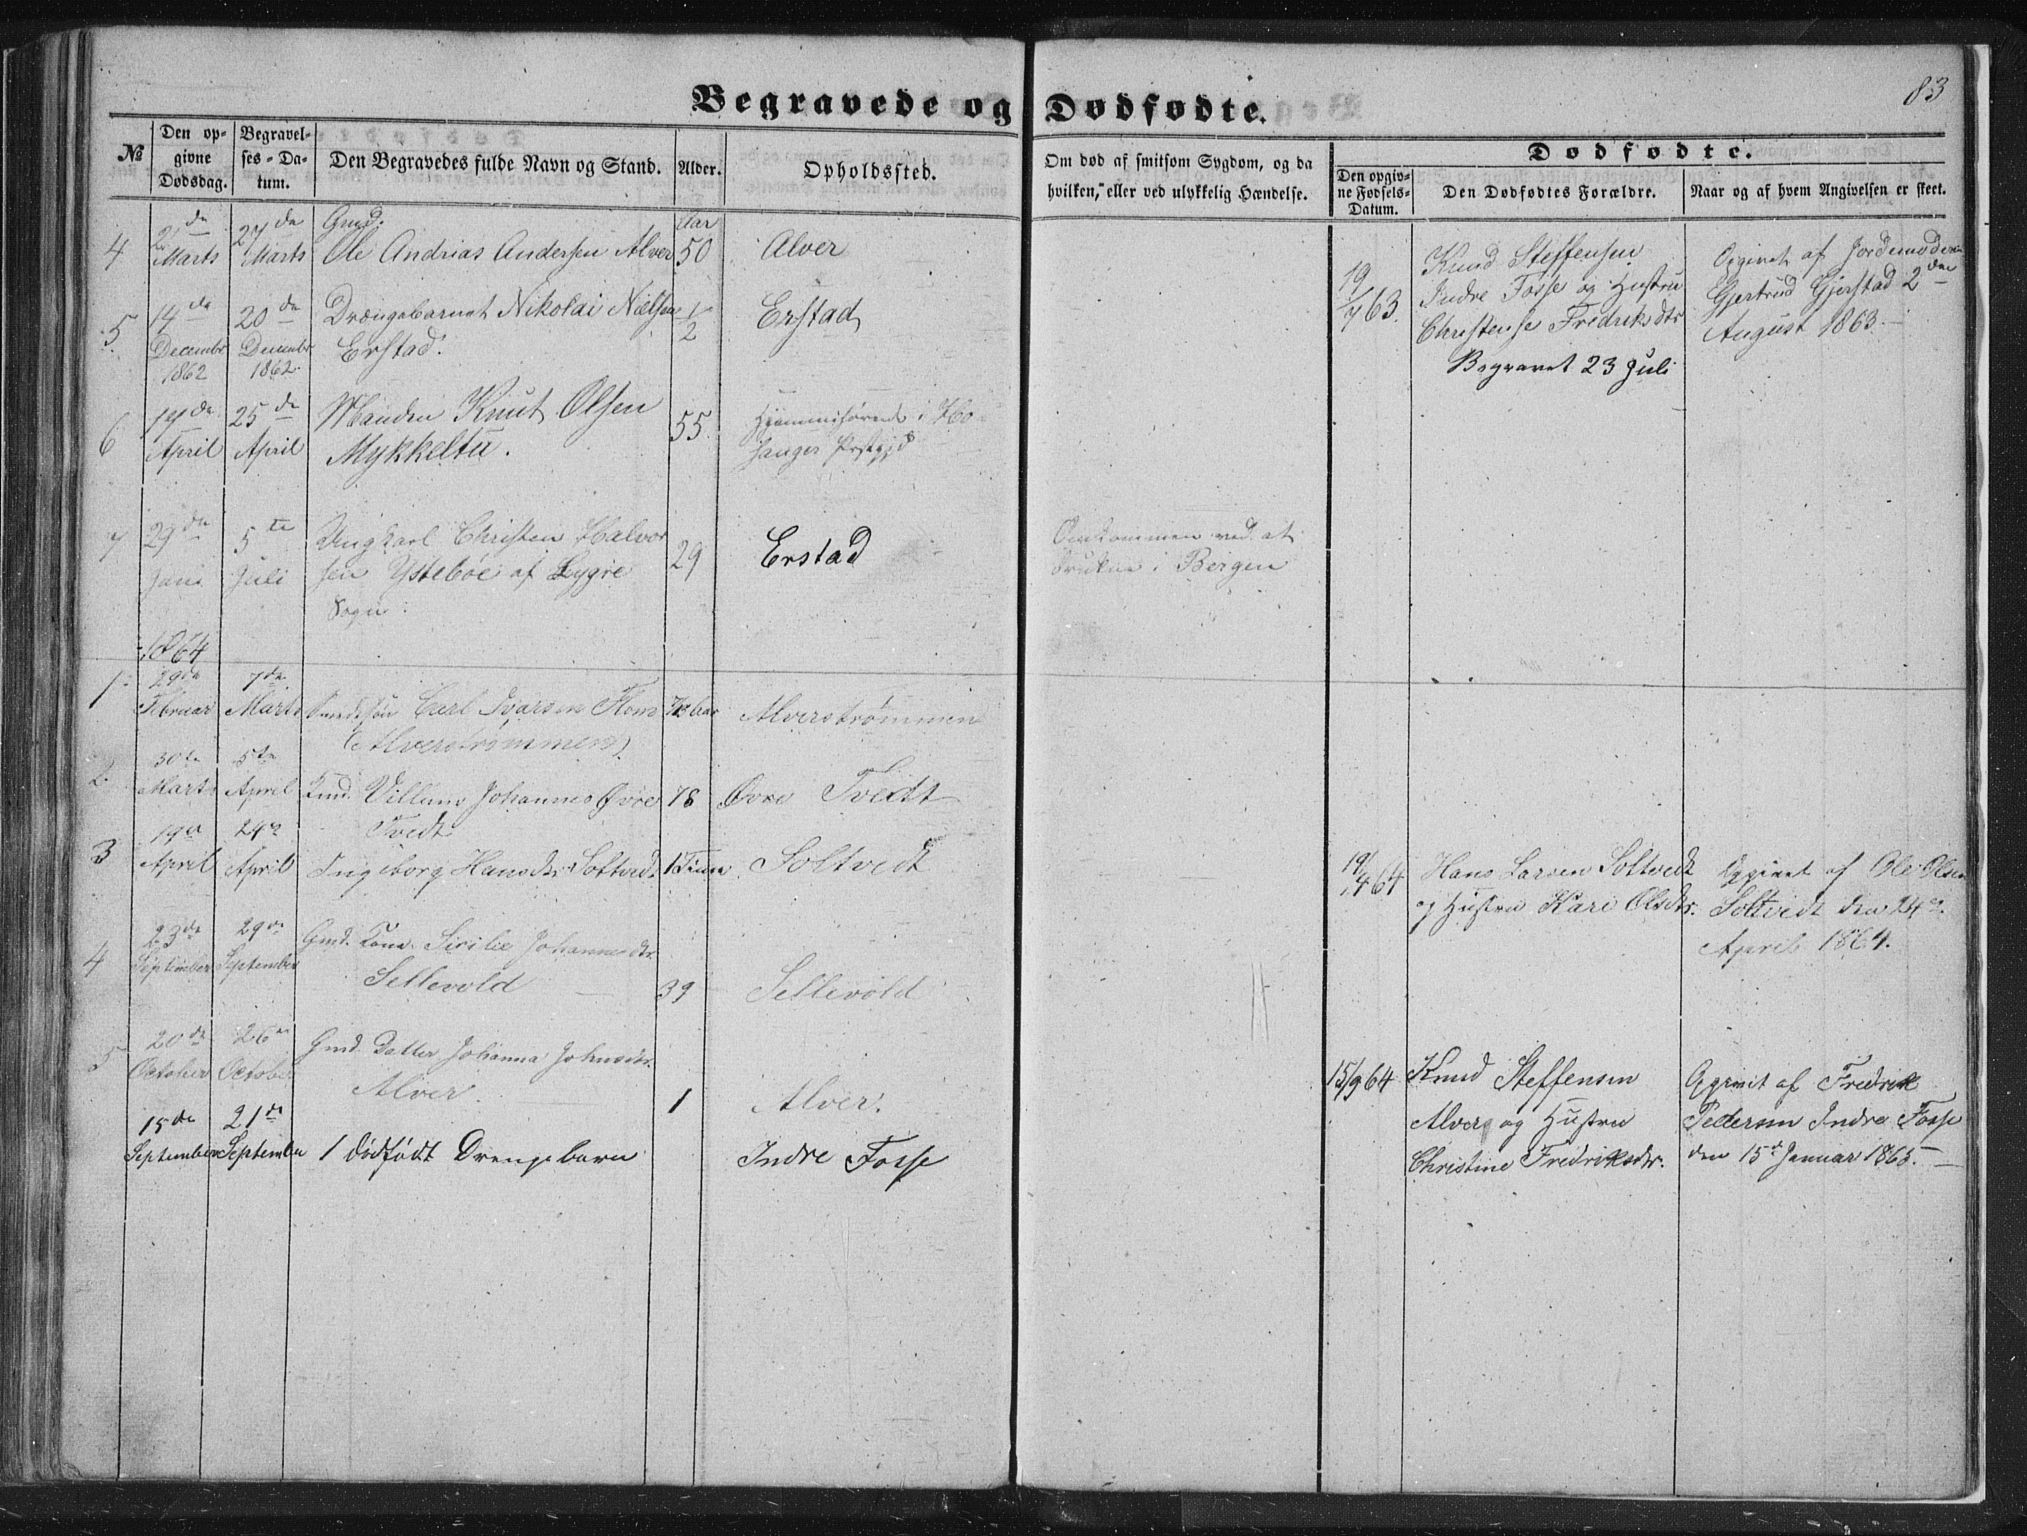 83
Begravede og Dødfødte.
№
Den opgivne Dødsdag.
Begravelses-Datum.
Den Begravedes fulde Navn og Stand.
Alder.
Opholdssted.
Om død af smitsom Sygdom, og da hvilken, eller ved ulykkelig Hændelse.
Dødfødte.
Den opgivne Fødsels-Datum.
Den Dødfødtes Forældre.
Naar og af hvem Angivelsen er skeet.
4
Marts
27de Marts
Gmd.
Ole Andrias Andersen Alver
Aar
50
Alver
5
14de December 1862
20de December 1862
Drængebarnet Nikolai Nielsen
Erstad.
1/2
Erstad
19/7 63.
Knud Steffensen
Indre Fosse og Hustru
Christense Fredriksdtr
Begravet 23 Juli
Opgivet af Jordemoderen
Gjertrud Gjerstad 2den
August 1863.
6
14de April
25de April
Manden Knut Olsen
Mykkeltu.
55
Hjemmehørende i Ho-
sanger Prstgjd
7
29de Juni
5te Juli
Ungkarl Christen Halvor
sen Ystebøe af Lygre
Sogn
29
Erstad
Omkommen ved at
drukne i Bergen
1864
1
29de Februar
7de Marts
Carl Ivarsen
(Alverstrømmen)
Alverstrømmen
2
30te Marts
5te April
Villum Johannes Øvre
Tvedt
78
Øvre Tvedt
3
19de April
24de April
Ingeborg Hansdtr Soltvedt
1 Time
Soltvedt
19/4 64
Hans Larsen Soltvedt
og Hustru Kari Olsdtr.
Opgivet af Ole Olsen
Soltvedt den 24de
April 1864.
4
23de September
29de September
Gmd. Kone Sicilie Johannesdtr.
Sellevold
39
Sellevold
5
20de October
26de October
Gmd. Datter Johanna Johnsdtr.
Alver.
1
Alver.
15/9 64
Knud Steffensen
Alver og Hustru
Christine Fredriksdtr.
Opgivet af Fredrik
Pedersen Indre Fosse
den 15de Januar 1865.
15de September
21de September
1 dødfødt Drengebarn
Indre Fosse